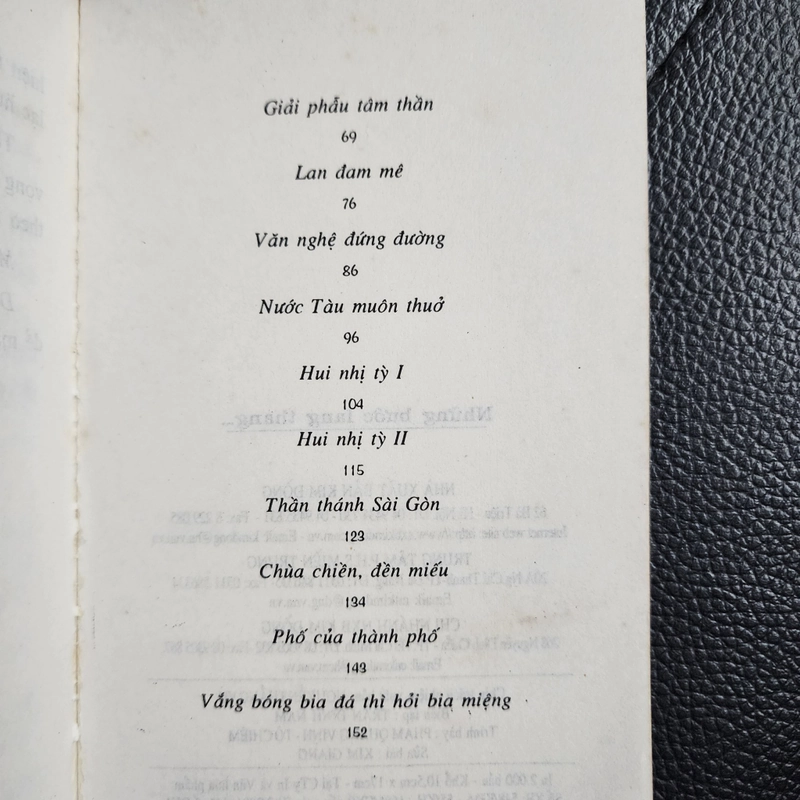 Giải phẫu tâm thần
69
Lan đam mê
76
Văn nghệ đứng đường
86
Nước Tàu muôn thuở
96
Hui nhị tỳ I
104
Hui nhị tỳ II
115
Thần thánh Sài Gòn
123
Chùa chiền, đền miếu
134
Phố của thành phố
143
Vắng bóng bia đá thì hỏi bia miệng
152